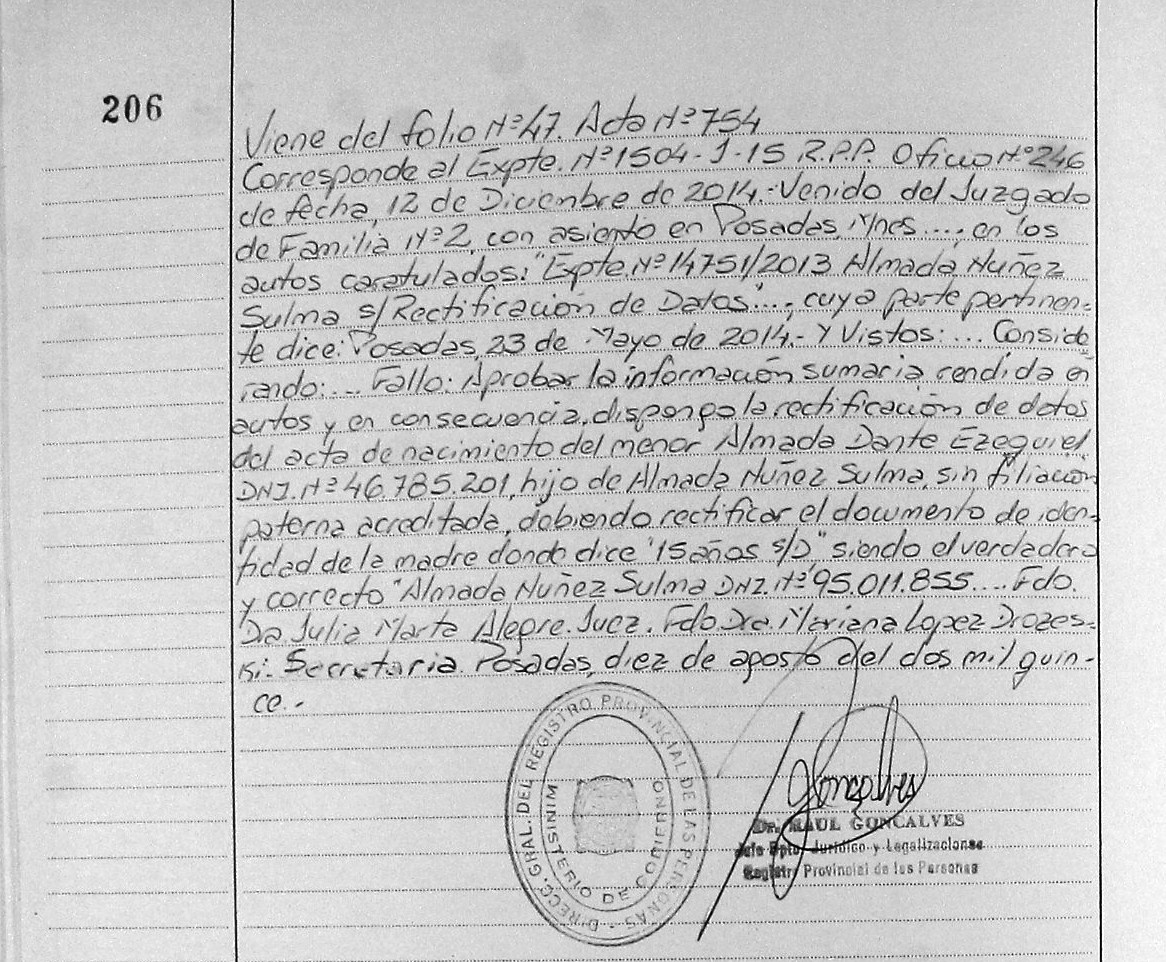 206
Viene del folio Nº 47. Acta Nº 754
Corresponde al Expte. Nº 1504-J-15 R.P.P. Oficio Nº 246
de fecha, 12 de Diciembre de 2014.- Venido del Juzgado
de Familia Nº 2, con asiento en Posadas, Mnes...., en los
autos caratulados: "Expte. Nº 14751/2013 Almada Nuñez
Sulma s/ Rectificación de Datos"..., cuya parte pertinen-
te dice: Posadas, 23 de Mayo de 2014.- Y Vistos:... Conside
rando:... Fallo: Aprobar la información sumaria rendida en
autos y en consecuencia, dispongo la rectificación de datos
del acta de nacimiento del menor Almada Dante Ezequiel
DNI. Nº 46.785.201, hijo de Almada Nuñez Sulma, sin filiación
paterna acreditada, debiendo rectificar el documento de iden-
tidad de la madre donde dice "15 años s/D" siendo el verdadero
y correcto "Almada Nuñez Sulma DNI. Nº 95.011.855.... Fdo.
Dra Julia Marta Alegre. Juez. Fdo Dra. Mariana Lopez Drozes-
ki- Secretaria. Posadas, diez de agosto del dos mil quin-
ce.-
DIRECC. GRAL. DEL REGISTRO PROVINCIAL DE LAS PERSONAS
MINISTERIO DE GOBIERNO
Gonçalves
Dr. RAUL GONCALVES
Jefe Dpto. Jurídico y Legalizaciones
Registro Provincial de las Personas